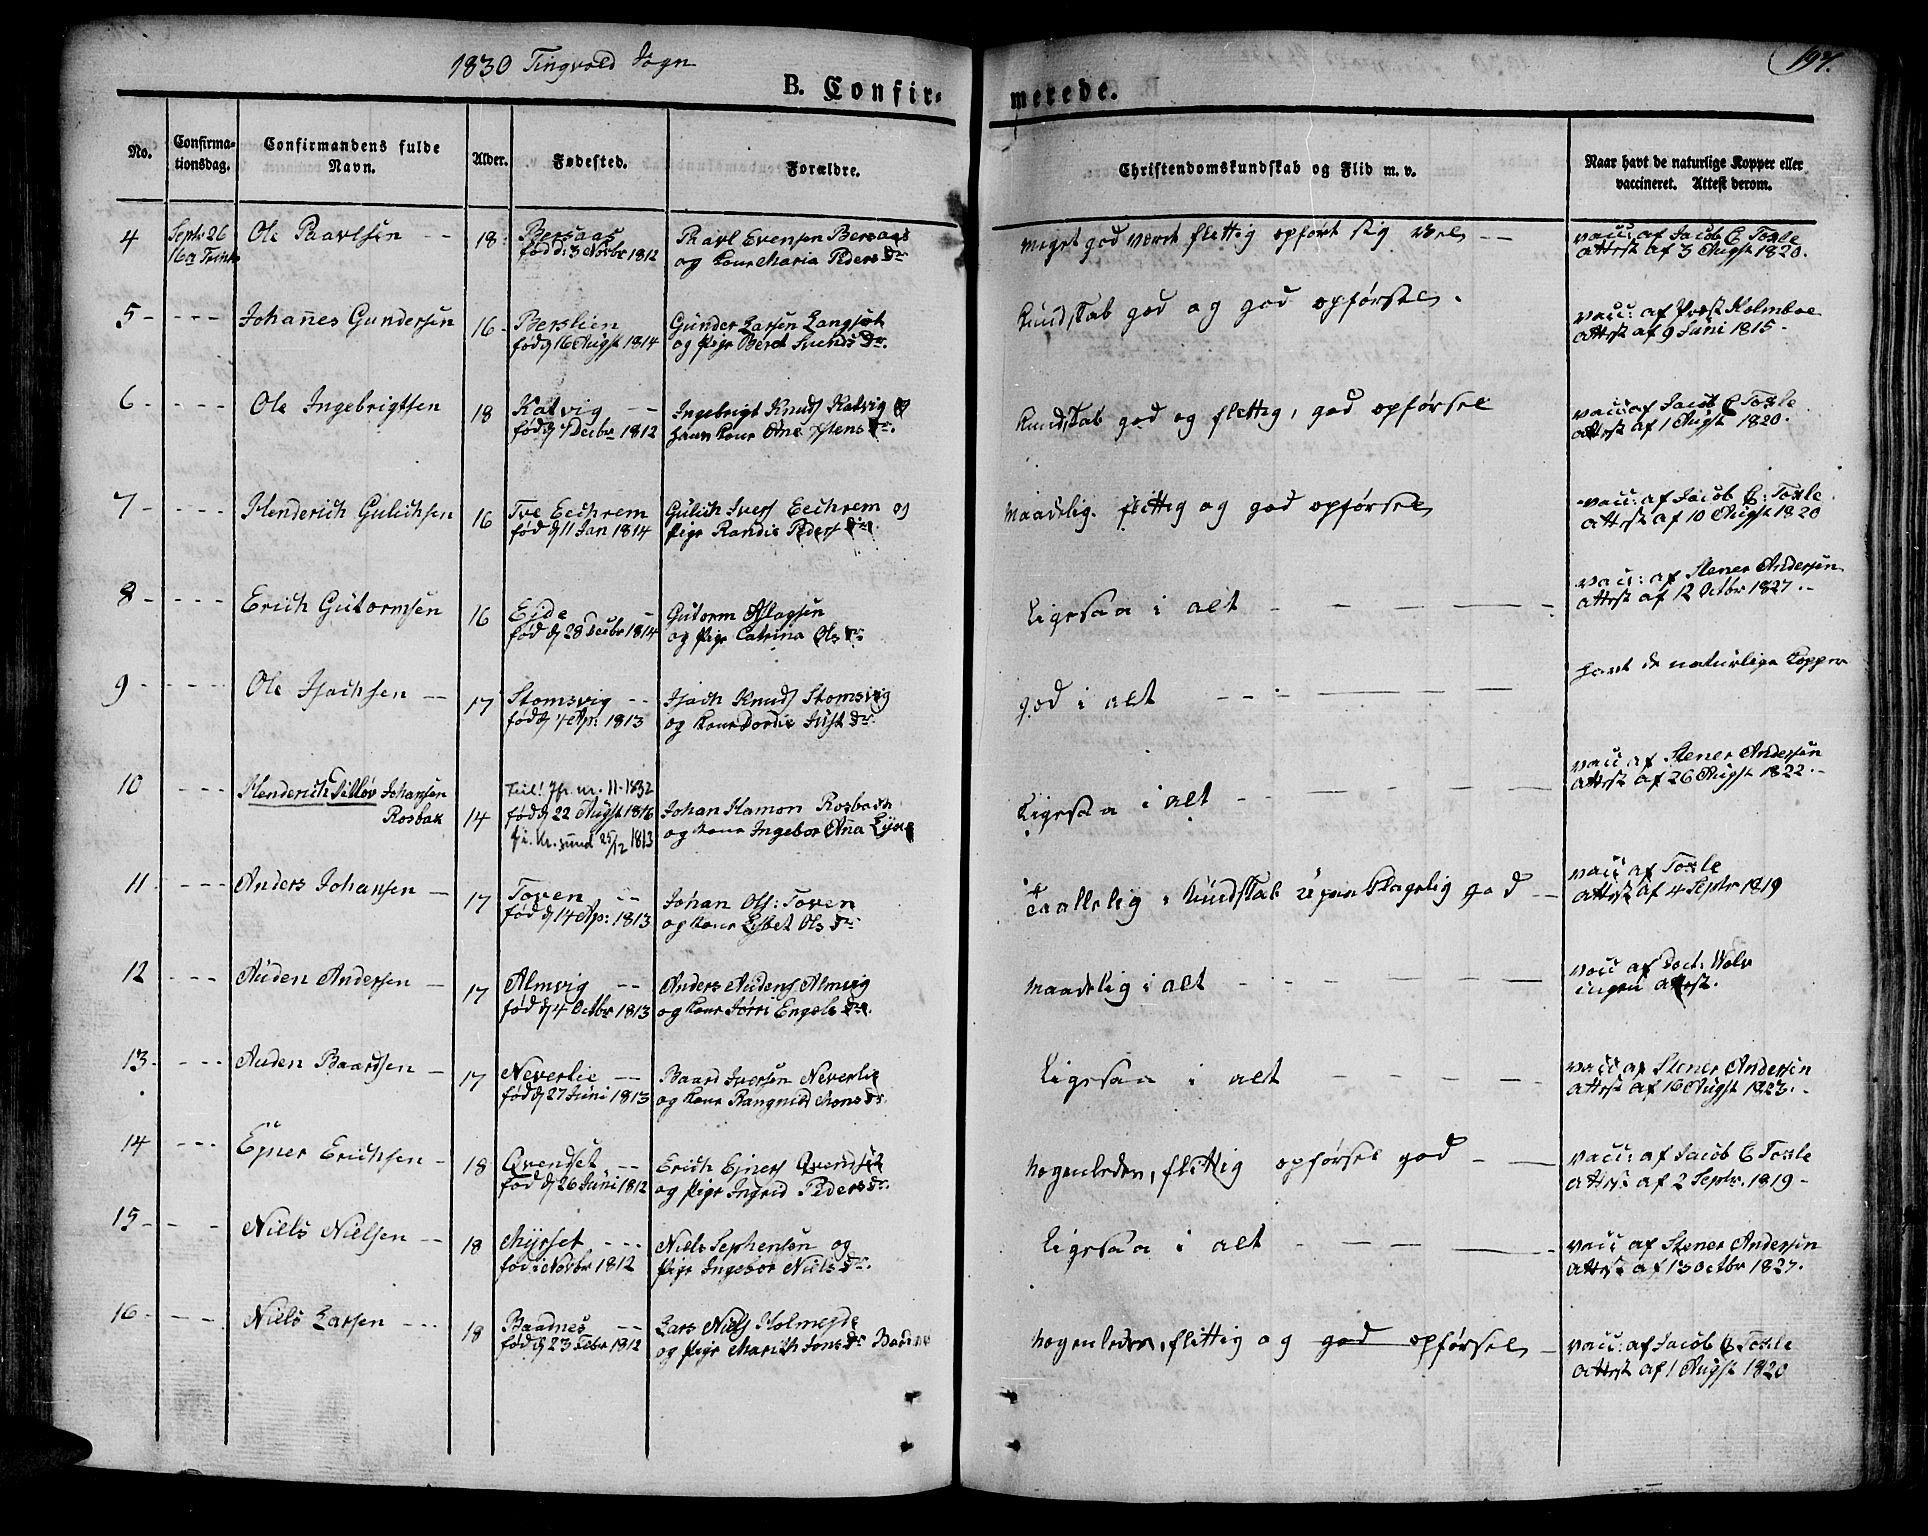 1830 Tingvold Sogn
197.
B. Confirmerede.
No.
Confirmationsdag.
Confirmandens fulde Navn.
Alder.
Fødested.
Forældre.
Christendomskundskab og Flid m. v.
Naar havt de naturlige Kopper eller vaccineret. Attest derom.
4 Septr 26 Ole Paavelsen -- 18 Bersaas Paavl Evensen Bersaas meget god været flittig opført sig vel -- vacc: af Jacob C Toxle
16a Trinit fød d: 3 Novbr 1812 og Kone Maria Peders Dr attest af 3 Augst 1820.
5 - - - - Johanes Gundersen 16 Berslien Gunder Larsen Langset Kundskab god og god opførsel. vacc: af Provst Holmboe
fød d 16 Augst 1814 og Pige Beret Svends Dr. attest af 9 Juni 1815 -
6 - - - - Ole Ingebrigtsen 18 Kalvig -- Ingebrigt Knuds Kalvig og Kundskab god og flittig, god opførsel vacc: af Jacob C Toxle
fød d 7 Decbr 1812 hans Kone Ane Stens Dr. attest af 1 Augst 1820.
7 - - - - Henderich Gulichsen 16 Tve Eechrem Gulich Ivers Eechrem og maadelig. flittig og god opførsel vacc: af Jacob C: Toxle
fød d 11 Jan 1814 Pige Randie Peders Dr. attest af 10 Augst 1820
8 - - - - Erich Gutormsen 16 Ejde - Gutorm Aslagsen Ligesaa i alt - - - - vacc: af Stener Andersen
fød d 28 Decbr 1814 og Pige Catrina Ols Dr attest af 12 Octbr 1827. -
9 - - - - Ole Isachsen -- 17 Stomsvig -- Isach Knuds Stomsvig god i alt - - - - havt de naturlige Kopper
fød d 4 Ap: 1813 og Kone Dordie Just Dr.
10 - - - Henderich Ditløv Johansen Feil! Jfr. nr. 11-1832
Rosbak 14 fød d 22 Augst 1816 Johan Hamon Rosbach Ligesaa i alt - - - - vacc af Stener Andersen
Kr.sund 25/12 1813 og Kone Ingebor Ana attest af 26 Augst 1822. -
11 - - - Anders Johansen - 17 Toven -- Johan Ols: Toven Taallelig i Kundskab upaaklagelig god -- vacc af Toxle
fød d 14 Ap: 1813 og Kone Lisbet Ols Dr attest af 4 Septr 1819
12 - - - Auden Andersen - 17 Almvig -- Anders Audens Almvig maadelig i alt - - - - vacc af Doct:
fød d 4 Octbr 1813 og Kone Jørri Engels Dr. ingen attest.
13 - - - Auden Baardsen - 17 Neverlie -- Baard Iversen Neverlie Ligesaa i alt - - - - vacc af Stener Andersen
fød d 27 Juni 1813 og Kone Rangnild Mons Dr attest af 16 Augst 1823. -
14 - - - Ejner Erichsen - 18 Qvendset -- Erich Ejners Qvendset nogenleden, flittig opførsel god - - vacc: af Jacob C Toxle
fød d 26 Juni 1812 og Pige Ingrid Peders Dr. attest af 2 Septr. 1819 -
15 - - - Niels Nielsen -- 18 Myrset - - - Niels Sephensen og Ligesaa i alt - - - - vacc af Stener Andersen
fød i Novbr 1812 Pige Ingebor Niels Dr. attest af 13 Octbr 1827.
16 - - - Niels Larsen - - - 18 Baadnes -- Lars Niels Holmejde nogenleden, flittig og god opførsel - vacc: af Jacob C Toxle
fød d 23 Febr 1812 og Pige Marith Jons Dr attest af 1 Augst 1820